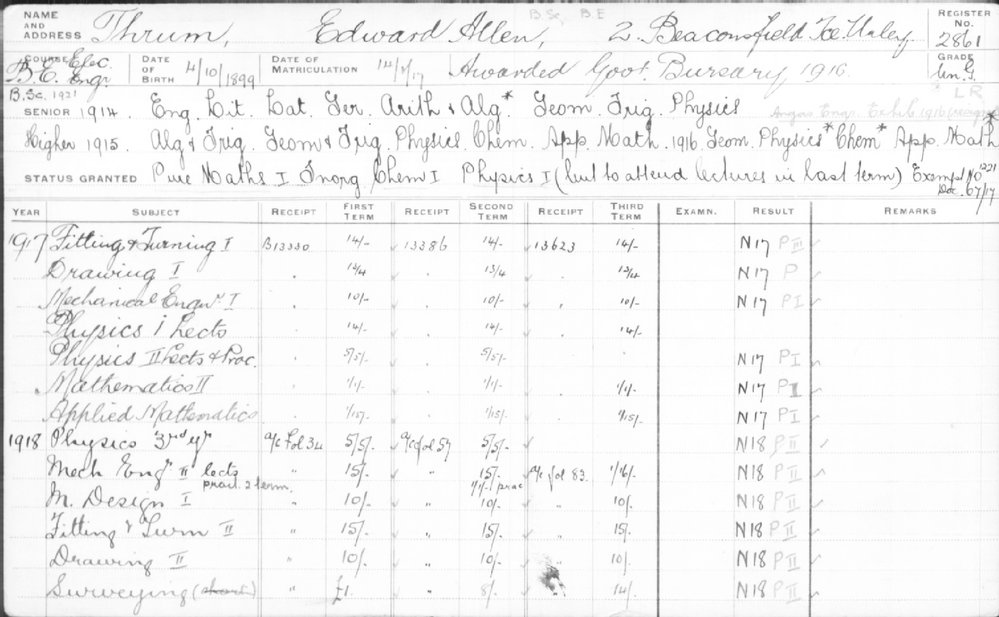 B.Sc. B.E
NAME AND ADDRESS Thrum, Edward Allen, 2. Beaconsfield Tce. Unley. REGISTER No. 2861
COURSE B.E. Elec. Engr. DATE OF BIRTH 4/10/1899 DATE OF MATRICULATION Awarded Govt. Bursary 1916. GRADE Un. G.
B.Sc. 1921 LR
SENIOR 1914. Eng. Lit. Lat. Ger. Arith & Alg* Geom. Trig. Physics Angas Engr. Exhib 1916 (resigned)
Higher 1915. Alg & Trig. Geom & Trig. Physics Chem. App. Math. 1916 Geom. Physics* Chem* App. Math*
STATUS GRANTED Pure Maths I Inorg Chem I Physics I (but to attend lectures in last term) Exempt No 1221 Doc. 67/17
YEAR SUBJECT RECEIPT FIRST TERM RECEIPT SECOND TERM RECEIPT THIRD TERM EXAMN. RESULT REMARKS
1917 Fitting & Turning I B13330 14/- 13386 14/- 13623 14/- N17 P III
Drawing I " 13/4 " 13/4 " 13/4 N17 P
Mechanical Engnr I " 10/- " 10/- " 10/- N17 P I
Physics I Lects " 14/- 14/- 14/-
Physics II Lects & Prac. " 5/5/- 5/5/- N17 P I
Mathematics II 1/1/- 1/1/- 1/1/- N17 P I
Applied Mathematics 1/15/- 1/15/- 1/15/- N17 P I
1918 Physics 3rd yr a/c Fol 34 5/5/- a/c fol 57 5/5/- N18 P II
Mech Engr II lects prac. 2 term. " 15/- " 15/- 1/1/- prac a/c fol 83. 1/16/- N18 P II
M. Design I " 10/- " 10/- " 10/- N18 P II
Fitting & Turn II " 15/- " 15/- 15/- N18 P II
Drawing II " 10/- " 10/- 10/- N18 P II
Surveying (short) " £1. " 8/- " 14/- N18 P II